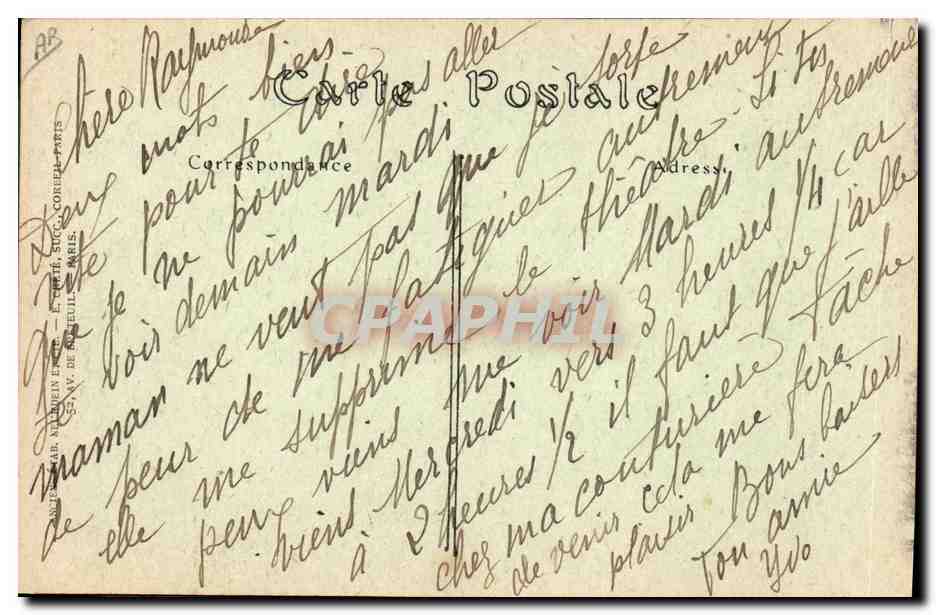 AB
Carte Postale
Correspondance
Adresse
ANCIENS ETAB. NEURDEIN ET CIE — E. CRÉTÉ, SUCC., CORBEIL, PARIS
52, AV. DE BRETEUIL — PARIS.
CPAPHIL
Chère Raymonde
Deux mots bien
vite pour te dire
que je ne pourrai pas aller
te voir demain mardi
maman ne veut pas que je sorte
de peur de me fatiguer autrement
elle me supprime le théâtre. Si tu
peux viens me voir Mardi autrement
viens Mercredi vers 3 heures 1/4 car
à 2 heures 1/2 il faut que j'aille
chez ma couturière tâche
de venir cela me fera
plaisir Bons baisers
Ton amie
Yvo